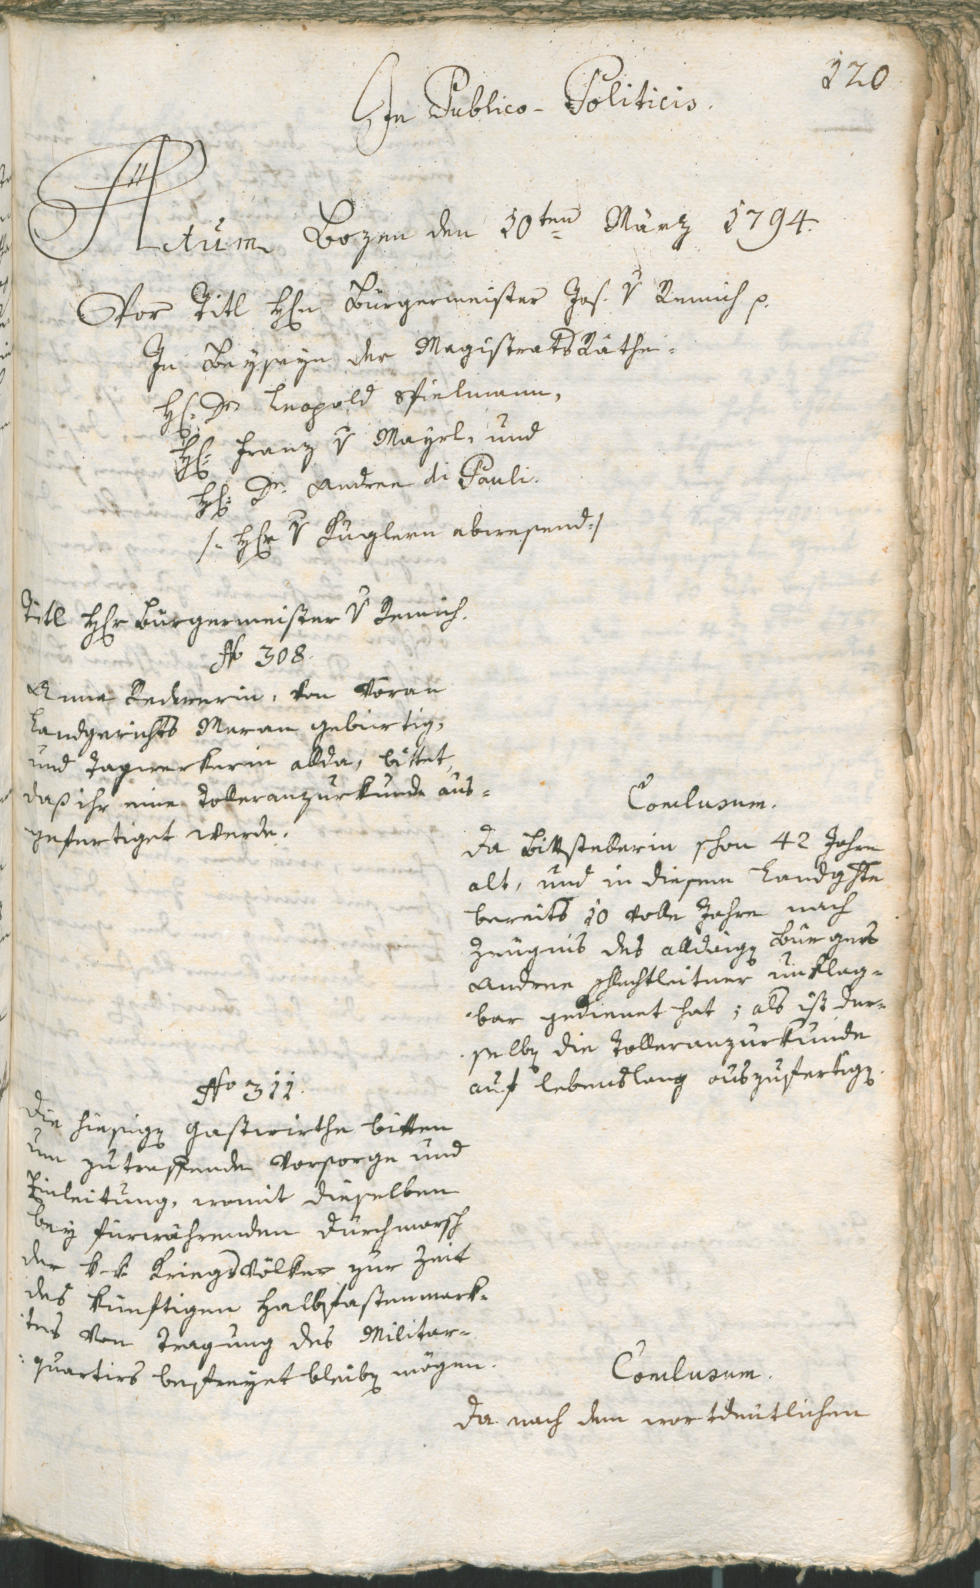 120
In Publico-Politicis.
Actum Bozen den 10ten März 1794.
Vor Titl Hℓn Bürgermeister Jos. v Remich p.
In Beyseyn der MagistratsRäthe.
Hℓ: Dr Leopold Spielmann,
Hℓ: Franz v Mayrl, und
Hℓ: Dr. Andree di Pauli.
/: Hℓr v Kuglern abwesend :/
Titl Hℓr Bürgermeister v Remich.
No 308.
Anna von Vöran
Landgerichts Meran gebürtig,
und Tagwerkerin allda, bittet,
daß ihr eine Tolleranzurkunde aus-
gefertiget werde.
Conclusum.
Da Bittstellerin schon 42 Jahre
alt, und in diesem Landghte
bereits 10 volle Jahre nach
Zeugnis des alldaigen Bürgers
Andree unklag-
bar gedienet hat; als ist der-
selben die Tolleranzurkunde
auf lebenslang auszufertigen.
No 311.
Die hiesigen Gastwirthe bitten
um zutreffende Vorsorge und
Einleitung, womit dieselben
bey fürwährenden Durchmarsch
der k. k. Kriegsvölker zur Zeit
des künftigen Halbfastenmark-
tes von Tragung des Militar-
quartirs befreyet bleiben mögen.
Conclusum.
Da nach dem wortdeutlichen